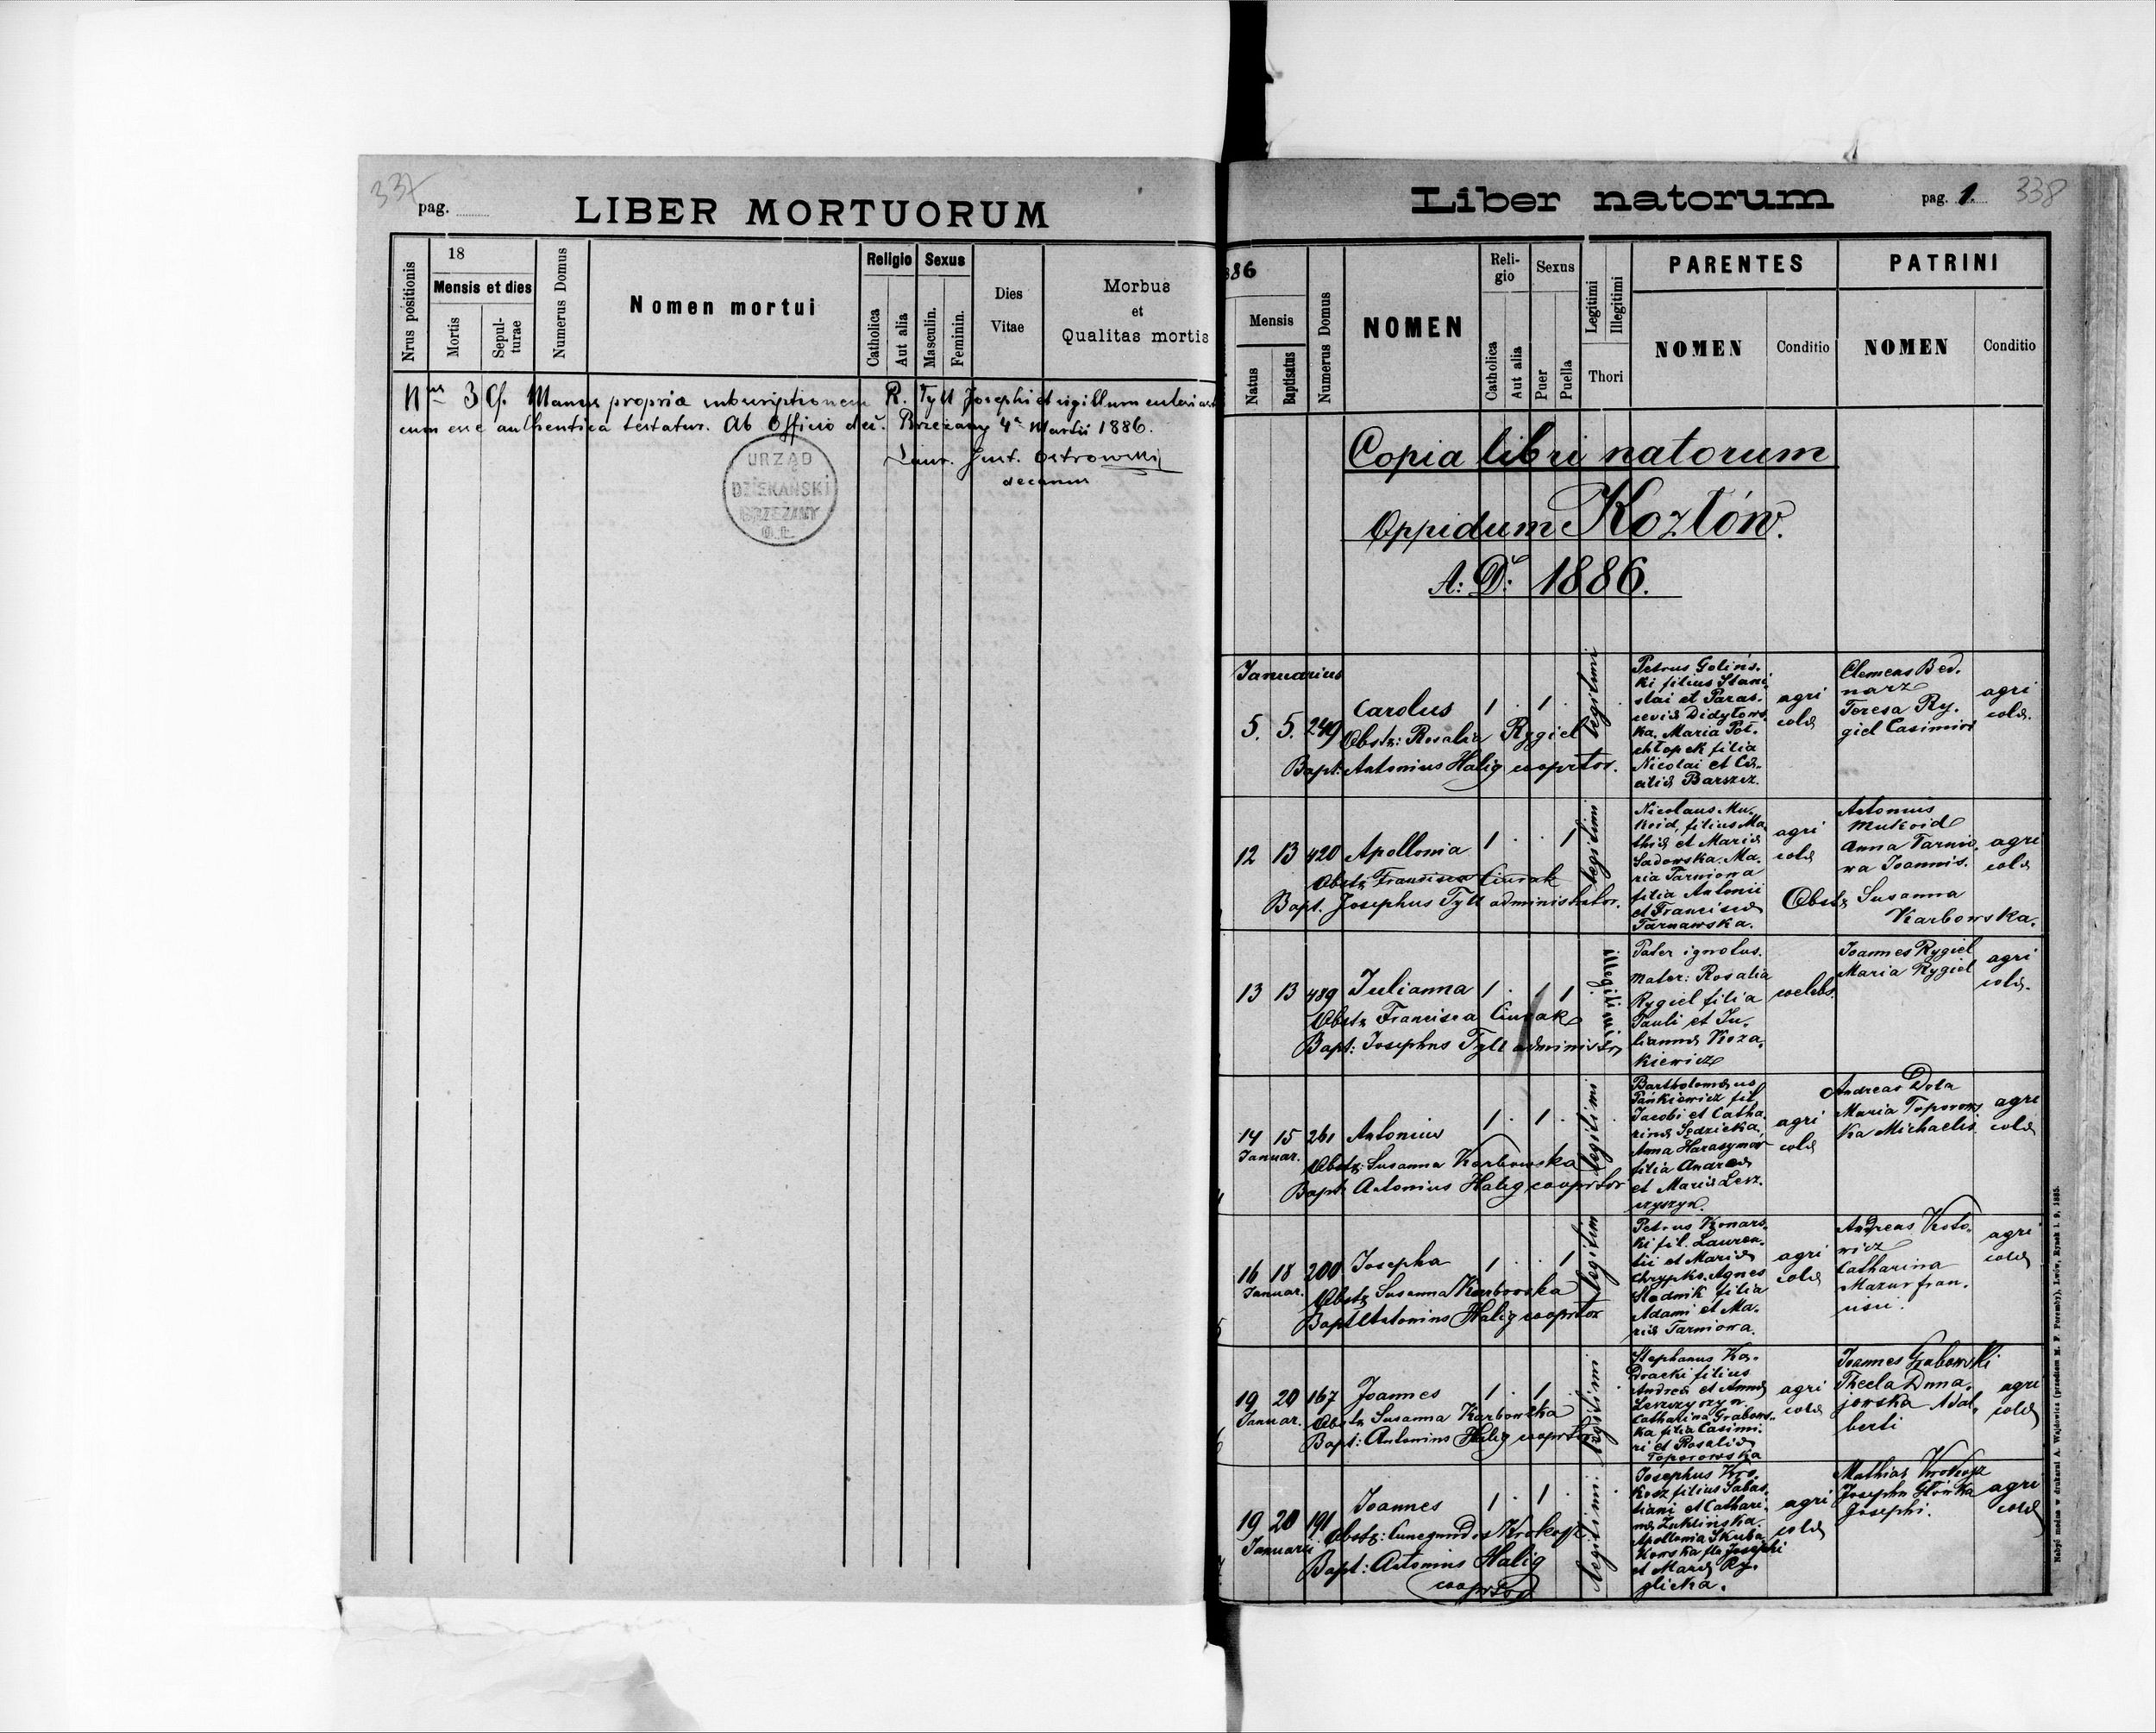 337
pag.
LIBER MORTUORUM
Nrus positionis
18
Mensis et dies
Mortis
Sepul-
turae
Numerus Domus
Nomen mortui
Religio
Catholica
Aut alia
Sexus
Masculin.
Feminin.
Dies
Vitae
Morbus
et
Qualitas mortis
Manus propria subscriptionem R. Tyll Josephi et sigillum
cum esse authentica testatur. Ab Officio dec. Brzezany 4a Martii 1886.
Ostrowski
decanus
URZĄD
DZIEKAŃSKI
BRZEZANY
Liber natorum
pag. 1.
338
886
Mensis
Natus
Baptisatus
Numerus Domus
NOMEN
Reli-
gio
Catholica
Aut alia
Sexus
Puer
Puella
Legitimi
Illegitimi
Thori
PARENTES
NOMEN
Conditio
PATRINI
NOMEN
Conditio
Copia libri natorum
Oppidum Kozłów.
A: D: 1886.
Januarius
5. 5. 249 Carolus 1 . 1 .
Obstz: Rosalia Rygiel
Bapt: Antonius Halig cooprtor.
legitimi
Petrus Golińs-
ki filius Stani
slai et Paras-
cevia Didyłows
ka. Maria Poł-
chłopek filia
Nicolai et
Barszcz.
agri
colæ
Clemens Bed-
narz
Teresa Ry-
giel Casimiri
agri
colæ.
12 13 420 Apollonia 1 . . 1
Obstz Francisca Ciurak
Bapt. Josephus Tyll administrator.
legitimi
Nicolaus Mu-
koid, filius Ma
thiæ et Mariæ
Sadowska. Ma-
ria Tarniowa
filia Antonii
et Franciscæ
Tarnawska.
agri
colæ
Antonius
Mukoid
Anna
wa Joannis.
agri
colæ
Obstz Susanna
Karbowska.
13 13 489 Julianna 1 . 1 1
Obstz Francisca Ciurak
Bapt: Josephus Tyll administr
illegitimi
Pater ignotus.
Mater: Rosalia
Rygiel filia
Pauli et Ju-
liannæ Koza-
kiewicz
coelebs.
Joannes Rygiel
Maria Rygiel
agri
colæ.
14 15 261 Antonius 1 . 1 .
Januar.
Obstz: Susanna Karbowska
Bapt: Antonius Halig cooprtor
legitimi
Bartholomæus
Pańkiewicz fil
Jacobi et Catha
rinæ Sędzicka.
Anna Harasymów
filia Andreæ
et Mariæ Lesz-
czyszyn.
agri
colæ
Andreas Dola
Maria Toporows
ka Michaelis
agri
colæ
16 18 200 Josepha 1 . . 1
Januar.
Obstz Susanna Karbowska
Bapt Antonius Halig cooprtor
legitim
Petrus Konars-
ki fil. Lauren-
tii et Mariæ
Chrypko. Agnes
filia
Adami et Ma-
riæ Tarniowa.
agri
colæ
Andreas Koto-
wicz
Catharina
Mazur fran-
cisci.
agri
colæ
19 20 167 Joannes 1 . 1 .
Januar.
Obstz Susanna Karbowska
Bapt: Antonius Halig cooprtor
legitimi
Stephanus
filius
Andreæ et Annæ
Leszczyszyn.
Catharina Grabows-
ka filia Casimi-
ri et Rosaliæ
Toporowska
agri
colæ
Joannes Grabowski
Thecla Duna-
jewska Adal-
berti
agri
colæ
19 20 191 Joannes 1 . 1 .
Januarii
Obstz: Cunegundes Krokosz
Bapt: Antonius Halig
cooprtor
legitimi
Josephus Kro-
kosz filius Sabas-
tiani et Cathari-
næ Żuklińska.
Apollonia Skuba
kowska fla Josephi
et Mariæ Ry-
glicka.
agri
colæ
Mathias Krokosz
Josepha Głowka
Josephi.
agri
colæ
Nabyć można w drukarni A. Wajdowicza (przedtem M. F. Poremby), Lwów, Rynek l. 9, 1885.